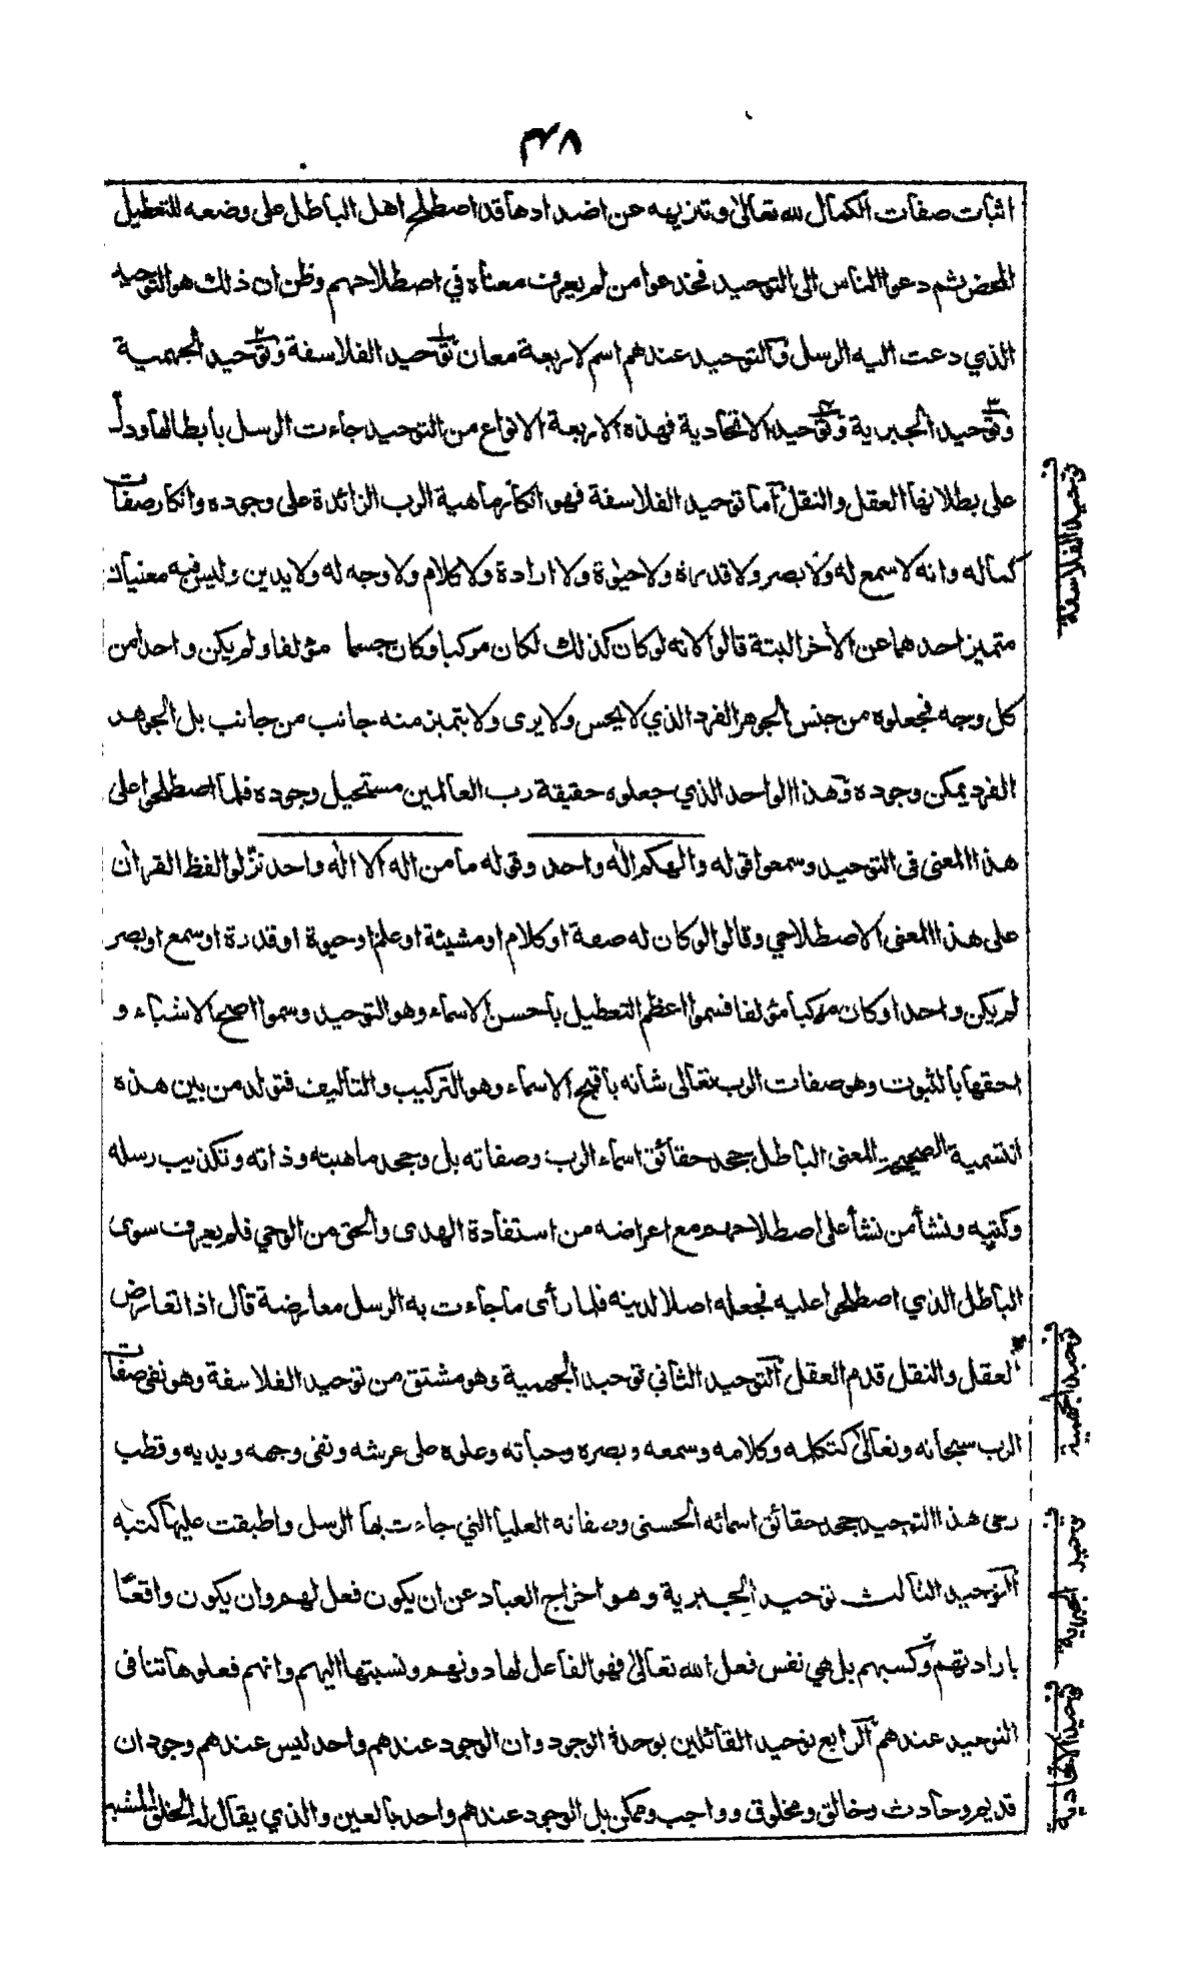 ٣٨
اثبات صفات الكمال لله تعالى وتنزيهه عن اضدادها قد اصطلح اهل الباطل على وضعه للتعطيل
المحض ثم دعوا الناس الى التوحيد فخدعوا من لم يعرف معناه في اصطلاحهم وظن ان ذلك هو التوحيد
الذي دعت اليه الرسل والتوحيد عندهم اسم لاربعة معان ١ توحيد الفلاسفة ٢ وتوحيد الجهمية
٣ وتوحيد الجبرية ٤ وتوحيد الاتحادية فهذه الاربعة الانواع من التوحيد جاءت الرسل بابطالها ودل
على بطلانها العقل والنقل اما توحيد الفلاسفة فهو انكار ماهية الرب الزائدة على وجوده وانكار صفات
كماله وانه لا سمع له ولا بصر ولا قدرة ولا حيوة ولا ارادة ولا كلام ولا وجه له ولا يدين وليس فيه معنيان
متميز احدهما عن الأخر البتة قالوا لانه لو كان كذلك لكان مركبا وكان جسما مؤلفا ولم يكن واحدا من
كل وجه فجعلوه من جنس الجوهر الفرد الذي لا يحس ولا يرى ولا يتميز منه جانب من جانب بل الجوهر
الفرد يمكن وجوده وهذا الواحد الذي جعلوه حقيقة رب العالمين مستحيل وجوده فلما اصطلحوا على
هذا المعنى في التوحيد وسمعوا قوله والهكم اله واحد وقوله ما من اله الا اله واحد نزلوا لفظ القران
على هذا المعنى الاصطلاحي وقالوا لو كان له صفة او كلام او مشيئة او علم او حيوة او قدرة او سمع او بصر
لم يكن واحدا وكان مركبا مؤلفا فسموا اعظم التعطيل باحسن الاسماء وهو التوحيد وسموا اصح الاشياء و
احقها بالثبوت وهو صفات الرب تعالى شانه باقبح الاسماء وهو التركيب والتاليف فتولد من بين هذه
التسمية الصحيحة للمعنى الباطل جحد حقائق اسماء الرب وصفاته بل وجحد ماهيته وذاته وتكذيب رسله
وكتبه ونشأ من نشأ على اصطلاحهم مع اعراضه من استفادة الهدى والحق من الوحي فلم يعرف سوى
الباطل الذي اصطلحوا عليه فجعله اصلا لدينه فلما رأى ما جاءت به الرسل معارضة قال اذا تعارض
العقل والنقل قدم العقل التوحيد الثاني توحيد الجهمية وهو مشتق من توحيد الفلاسفة وهو نفى صفات
الرب سبحانه وتعالى كتكلمه وكلامه وسمعه وبصره وحياته وعلوه على عرشه ونفى وجهه ويديه وقطب
رحى هذا التوحيد جحد حقائق اسمائه الحسنى وصفاته العليا التي جاءت بها الرسل واطبقت عليها كتبه
التوحيد الثالث توحيد الجبرية وهو اخراج العباد عن ان يكون فعل لهم وان يكون واقعًا
بارادتهم وكسبهم بل هي نفس فعل الله تعالى فهو الفاعل لها دونهم ونسبتها اليهم وانهم فعلوها تنافى
التوحيد عندهم الرابع توحيد القائلين بوحدة الوجود وان الوجود عندهم واحد ليس عندهم وجودان
قديم وحادث وخالق ومخلوق وواجب وممكن بل الوجود عندهم واحد بالعين والذي يقال له الخلق المشبه
توحيد الفلاسفة
توحيد الجهمية
توحيد الجبرية
توحيد الاتحادية